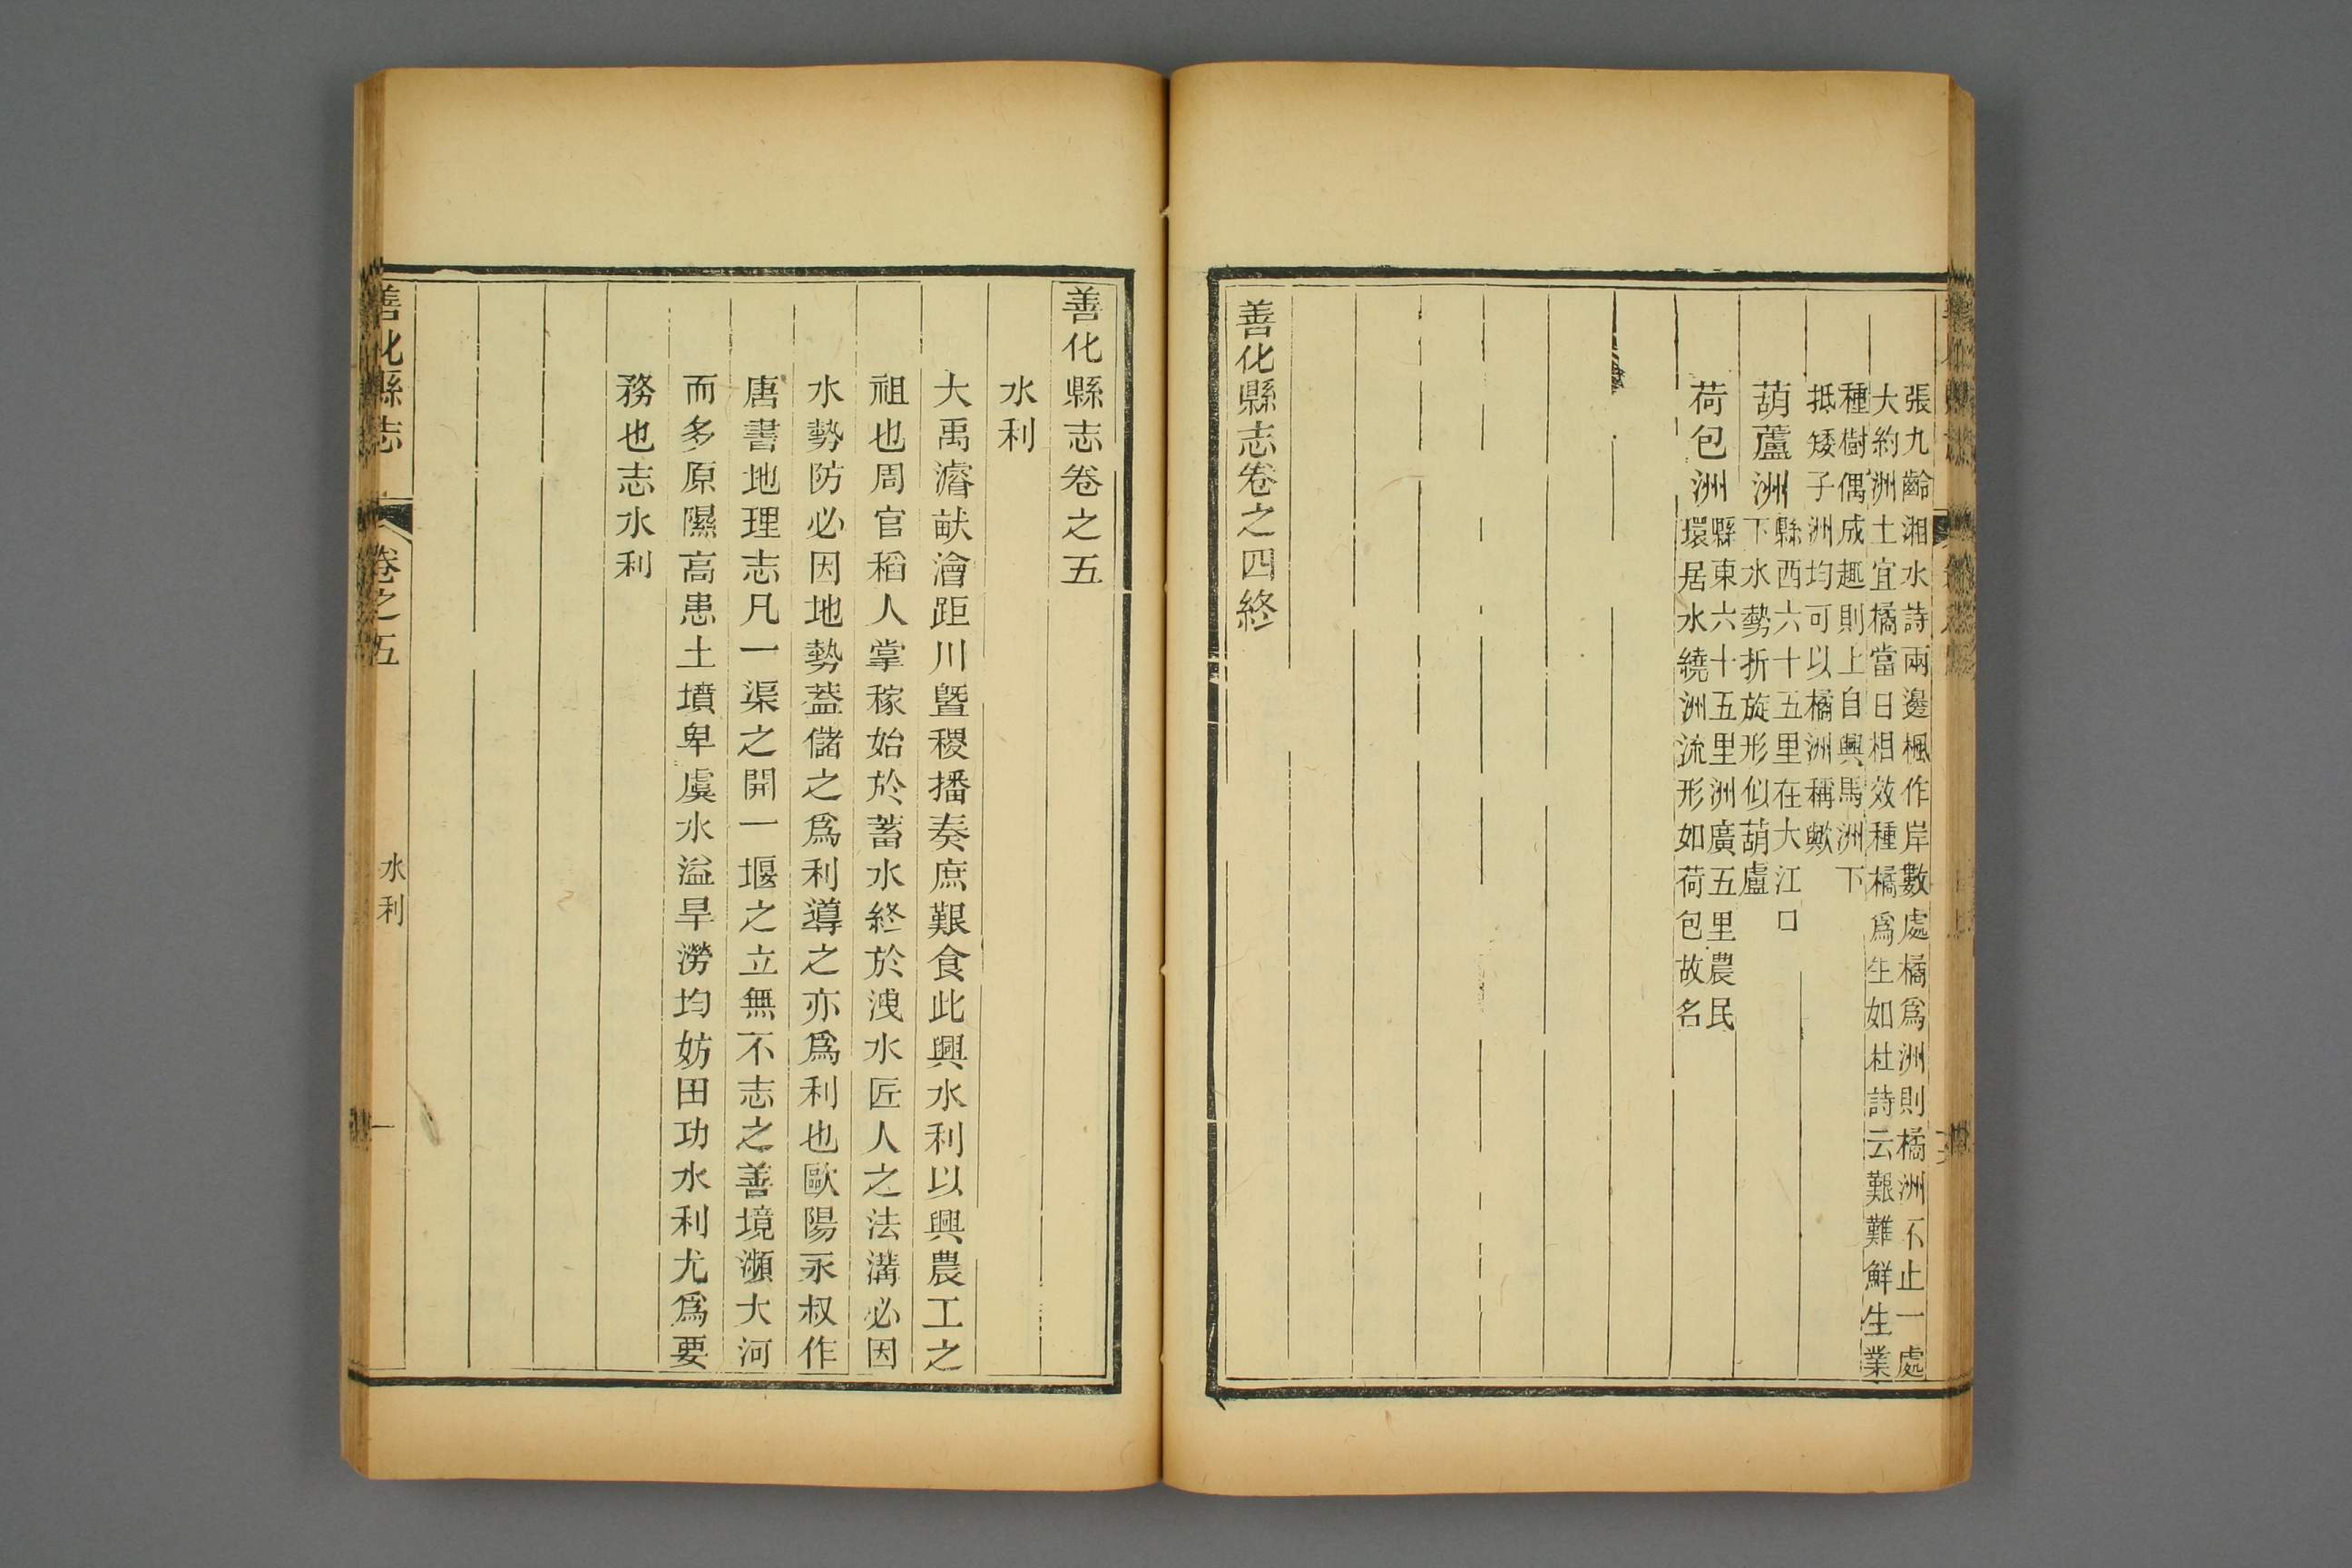 張九齡湘水詩兩邊楓作岸數處橘爲洲則橘洲不止一處
大約洲土宜橘當日相效種橘爲生如杜詩云艱難鮮生業
種樹偶成趣則上自興馬洲下
抵矮子洲均可以橘洲稱歟
葫蘆洲縣西六十五里在大江口
下水勢折旋形似葫盧
荷包洲縣東六十五里洲廣五里農民
環居水繞洲流形如荷包故名
善化縣志卷之四終
善化縣志卷之五
水利
大禹濬畎澮距川曁稷播奏庶艱食此興水利以興農工之
祖也周官稻人掌稼始於蓄水終於洩水匠人之法溝必因
水勢防必因地勢蓋儲之爲利導之亦爲利也歐陽永叔作
唐書地理志凡一渠之開一堰之立無不志之善境瀕大河
而多原隰高患土墳卑虞水溢旱澇均妨田功水利尤爲要
務也志水利
善化縣志 卷之五 水利 一